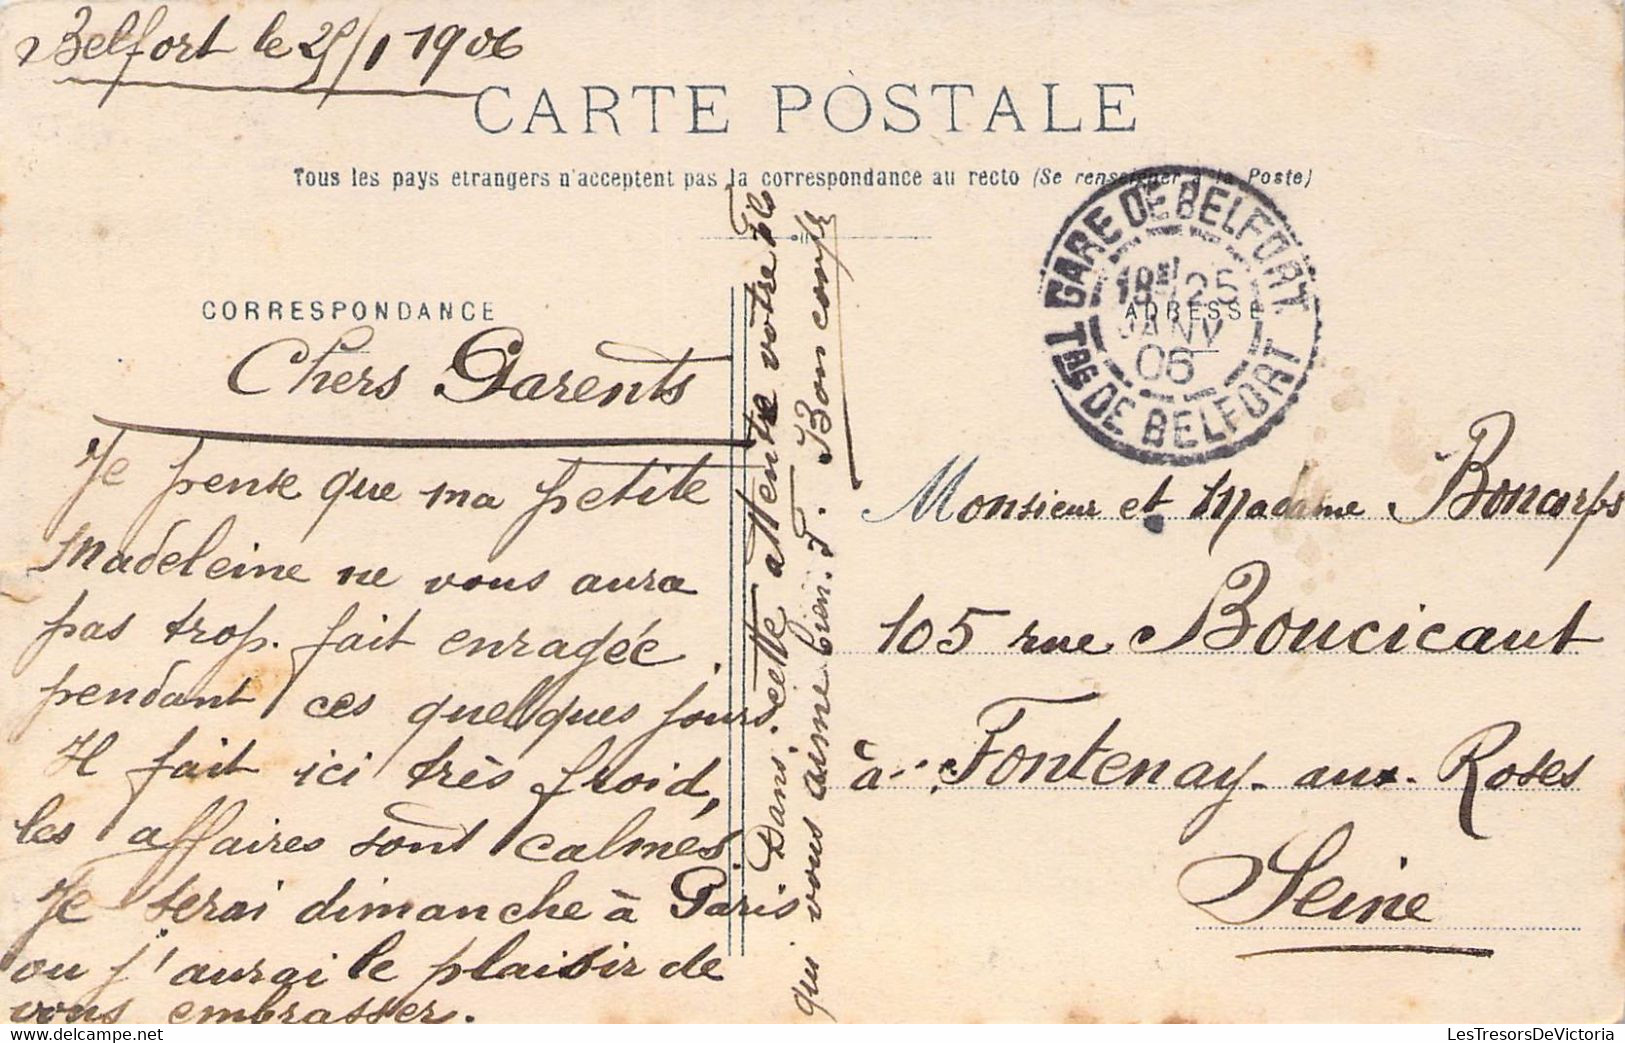 Belfort le 25/1 1906
CARTE POSTALE
Tous les pays etrangers n'acceptent pas la correspondance au recto (Se renseigner à la Poste)
CORRESPONDANCE
Chers Parents
Je pense que ma petite
Madeleine ne vous aura
pas trop fait enragée
pendant ces quelques jours.
Il fait ici très froid,
les affaires sont calmes.
Je serai dimanche à Paris
ou j'aurai le plaisir de
vous embrasser.
Dans cette attente votre fils
qui vous aime bien. F. Boncorps
GARE DE BELFORT
18E 25
JANV
06
Tre DE BELFORT
ADRESSE
Monsieur et Madame Boncorps
105 rue Boucicaut
à Fontenay-aux-Roses
Seine
LesTresorsDeVictoria.com